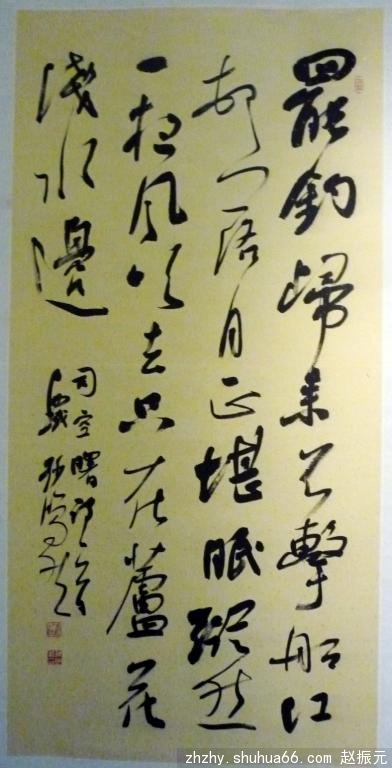 罷釣歸來不繫船江
村落月正堪眠縱然
一夜風吹去只在蘆花
淺水邊
司空曙詩
zhzhy.shuhua66.com 赵振元